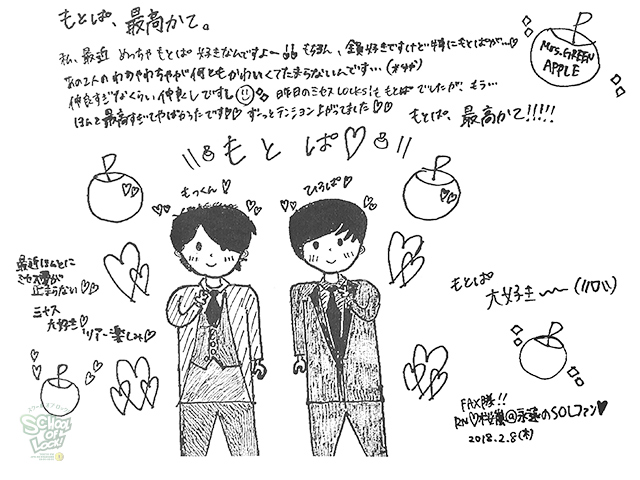 もとぱ、最高かて。
私、最近 めっちゃ もとぱ 好きなんですよー!! もちろん、全員好きですけど特にもとぱが…♡
あの2人の わちゃわちゃが 何ともかわいくて たまらないんです…
仲良すぎなくらい 仲良しですし 昨日のミセスLOCKS!も もとぱ でしたが、もう…
ほんと最高すぎてやばかったです♡♡ ずーっとテンション上がってました♡♡
もとぱ、最高かて!!!!!
Mrs. GREEN
APPLE
もとぱ♡
もっくん♡
ひろぱ♡
最近ほんとに
ミセス愛が
止まらない♡♡
ミセス
大好き♡
ツアー楽しみ♡
もとぱ
大好き〜〜
FAX隊!!
RN
@永遠のSOLファン♥
2018.2.8(木)
SCHOOL
OF
LOCK!